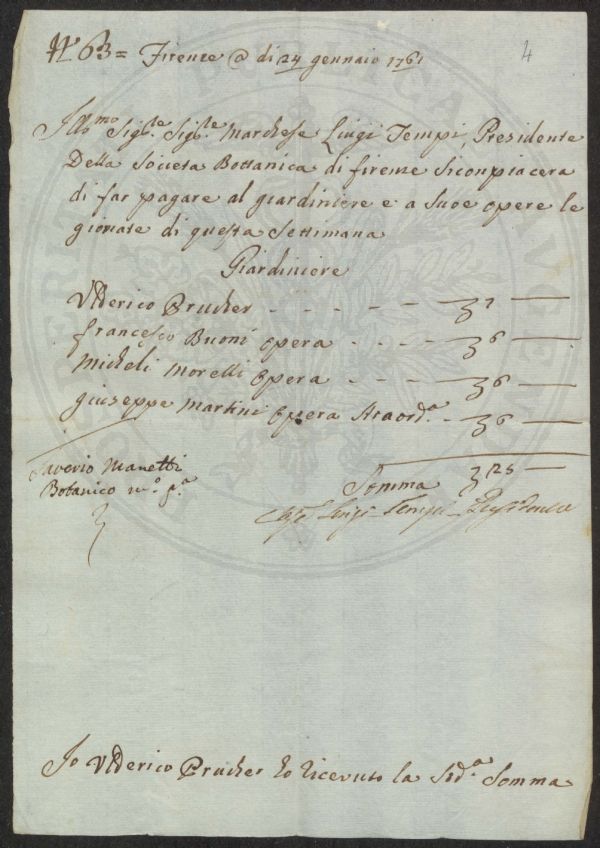 N° 63 = Firenze @ di 24 gennaio 1761
4
Ill.mo Sig.re Sig.re Marchese Luigi Tempi, Presidente
Della Societa Bottanica di firenze si conpiacera
di far pagare al giardiniere e a suoe opere le
giornate di questa Settimana
Giardiniere
Ulderico Prucher - - - - - - 7 —
françesco Buoni opera - - - - 6 —
Micheli Morelli opera - - - 6 —
giuseppe Martini opera straord.a - 6 —
Saverio Manetti
Botanico m.o p.a
Somma 25 —
Luigi Tempi Presidente
Io Ulderico Prucher ho ricevuto la Sud.a Somma